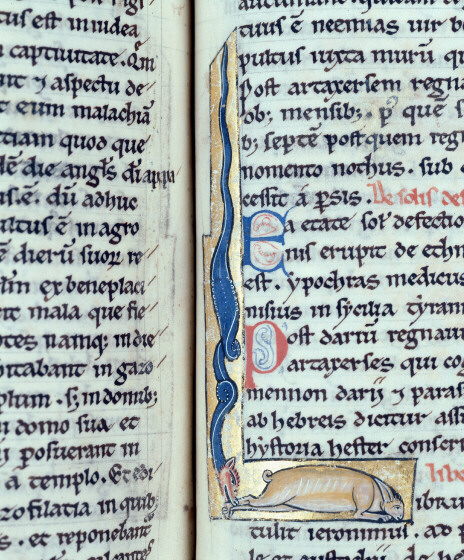 tus est in iudea
captiuitate. Qm
⁊ aspectu de
t eum malachia
tiam quod que
die angls dn̄i appa
s.ē. dū adhuc
ultus ē in agro
ē dierū suoꝝ re
ex beneplaci
it mala que fie
tes namq; in die
itabant in garo
plum. s; in domib;
domo sua et
posuerant in
a templo. Et edi
rofilatia in quib;
et reponebant
tuus ē neemias uir
pultus iuxta murū
Post artaxersem regna
ob; mensib;. p quē
b; septē post quem reg
nomento nothus. sub
cessit a psis. De solis def
Ea etate solˀ defectio
nis erupit de ethn
est. ypochras medicus
nisius in sycilia tyrann
Post dariū regnau
artaxerses qui cog
mennon darii ⁊ paras
ab hebreis dicitur ass
hystoria hester conser
libe
ibru
tulit ieronimus. ad